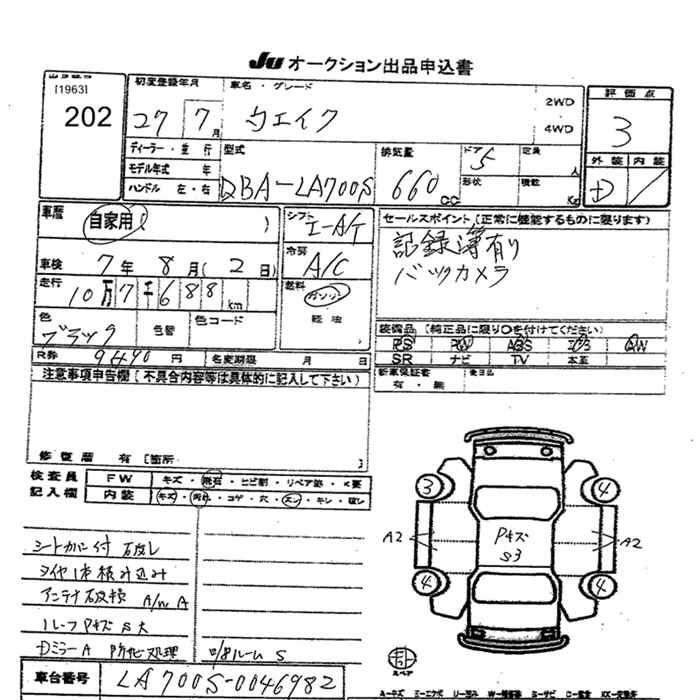 JU オークション出品申込書
[1963]
202
初度登録年月 車名・グレード
27 7月 ウエイク
2WD
4WD
評価点
3
外装 内装
D
ディーラー・並行
モデル年式 年
ハンドル 左・右
型式
DBA-LA700S
排気量
660 CC
ドア 5
形状
定員 人
積載 Kg
車歴 自家用( )
シフト
I-A/T
セールスポイント(正常に機能するものに限ります)
記録簿有り
バックカメラ
車検 7年 8月( 2日)
冷房
A/C
走行 10万7千688km
燃料
ガソリン
軽油
色
ブラック
色替 色コード
R券 9490円 名変期限 月 日
装備品(純正品に限り○を付けてください)
PS PW ABS エアB AW
SR ナビ TV 本革
新車保証書 後日品
有・無
注意事項申告欄(不具合内容等は具体的に記入して下さい)
修復歴 有[箇所
検査員
記入欄
FW キズ・飛石・ヒビ割・リペア跡・X要
内装 キズ・汚れ・コゲ・穴・スレ・キレ・破レ
シートカバー付
タイヤ1本積み込み
アンテナ破損 A/W A
ルーフ Pキズ S大
DミラーA 防化処理
ルーム S
3
4
4
4
A2
A2
Pキズ
S3
スペア
車台番号 LA700S-0046982
A-キズ